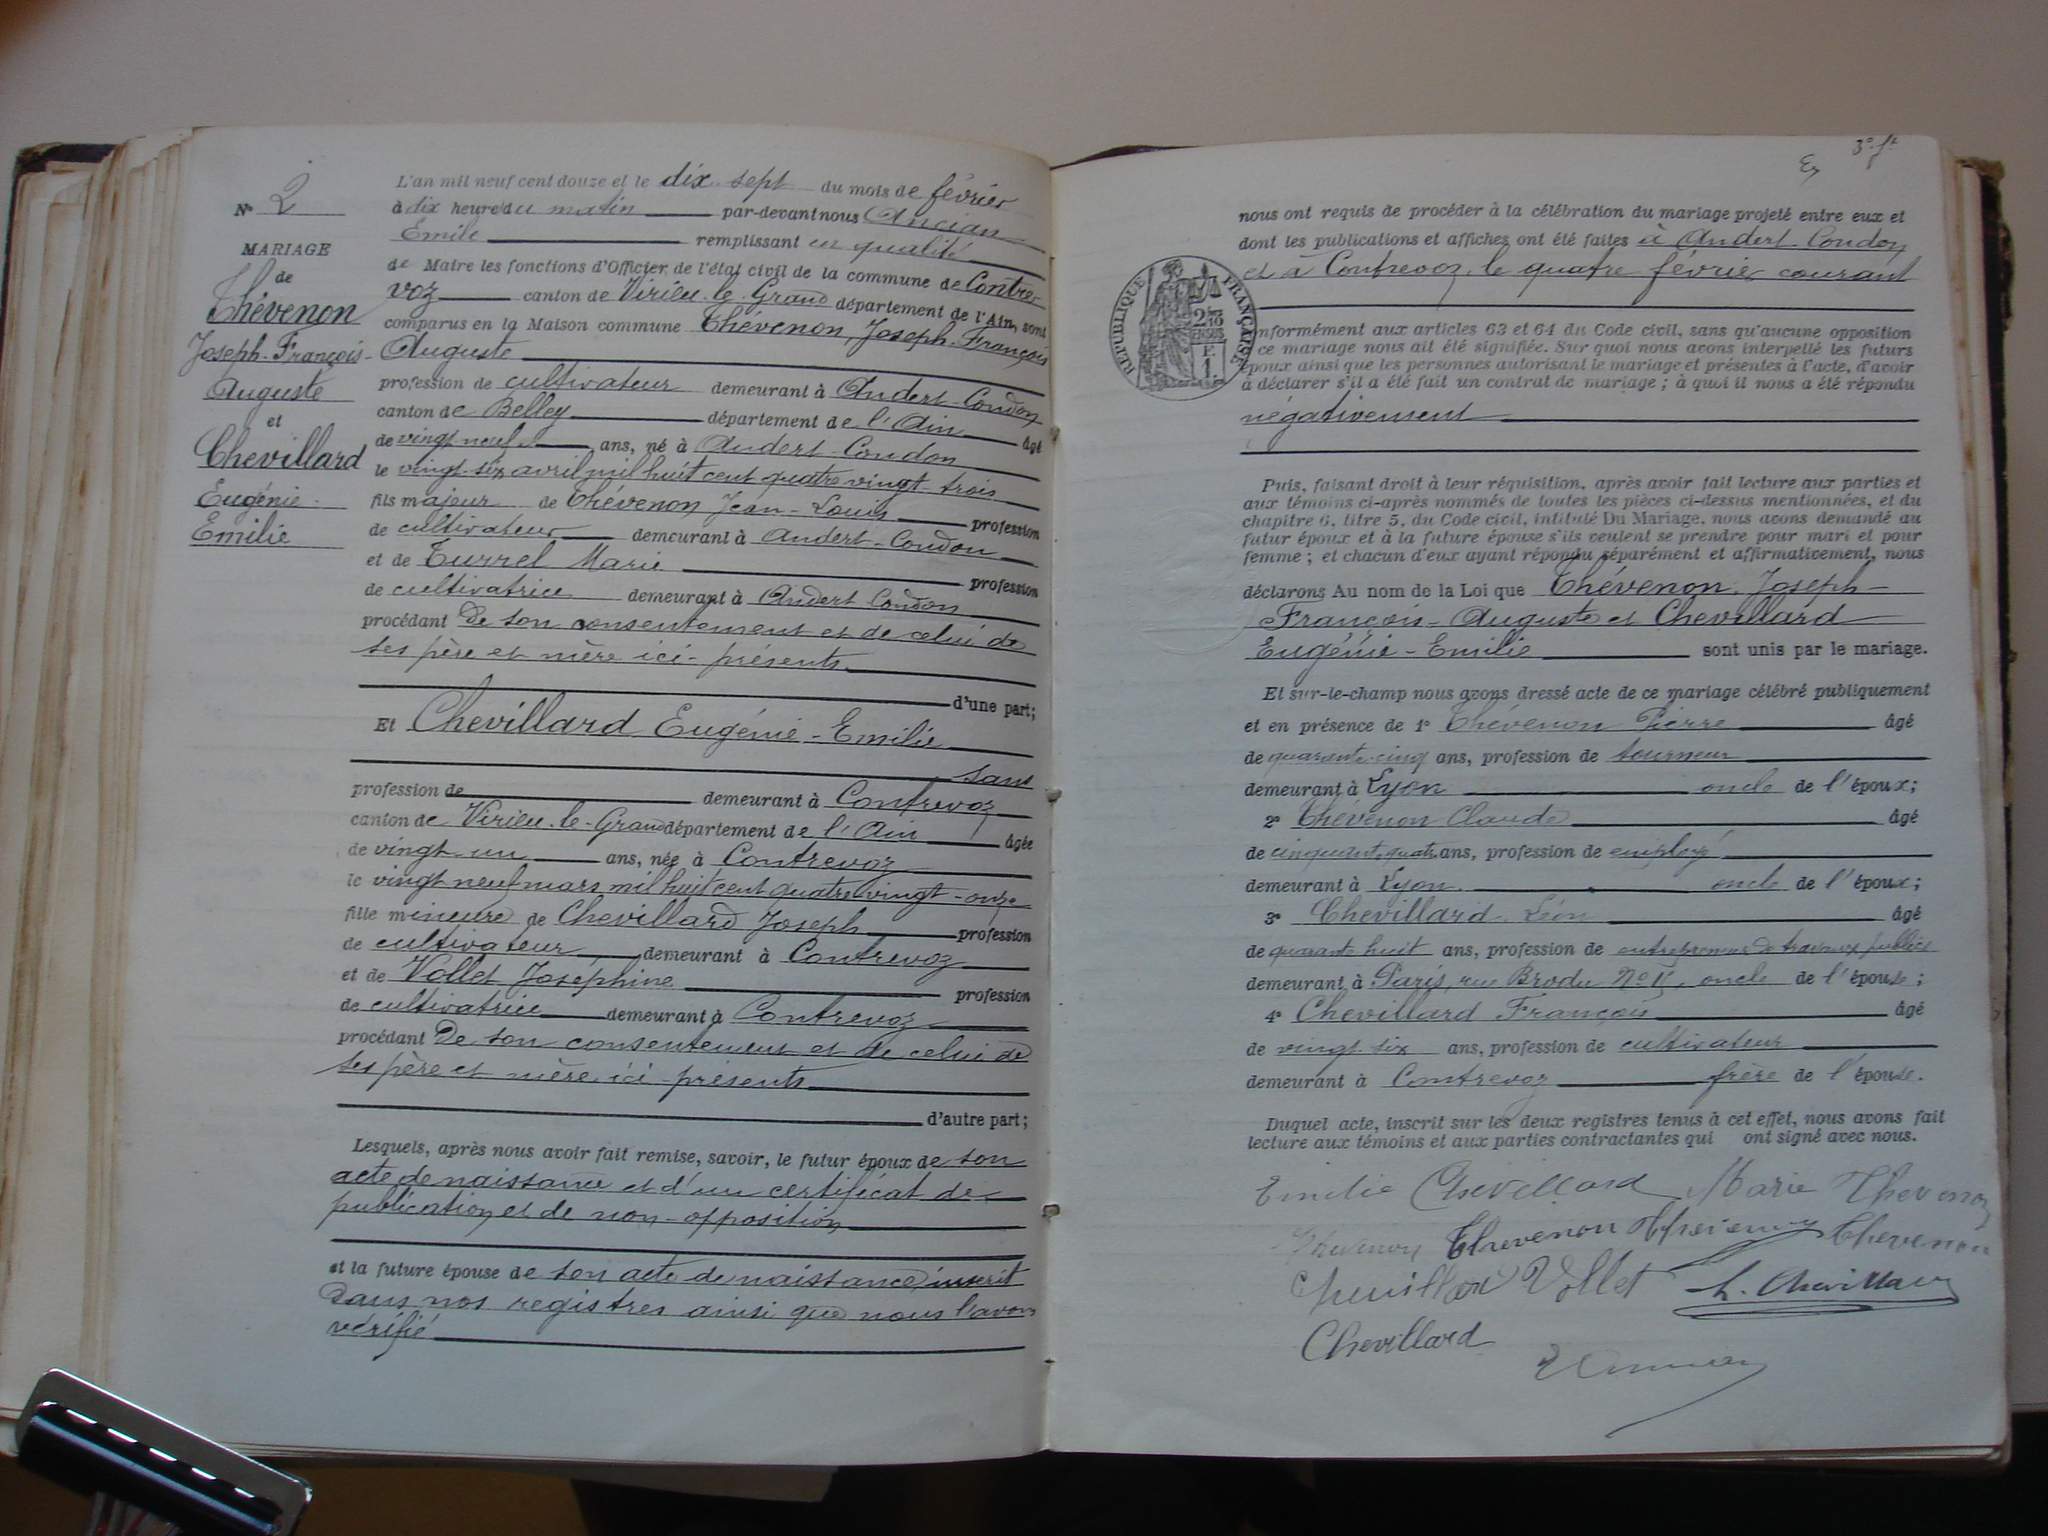 N° 2
MARIAGE
de
Thévenon
Joseph-François-
Auguste
et
Chevillard
Eugénie-
Emilie
L'an mil neuf cent douze et le dix sept du mois de février
à dix heures du matin par-devant nous Ancian
Emile remplissant en qualité
de Maire les fonctions d'Officier de l'état civil de la commune de Contre
voz canton de Virieu-le-Grand département de l'Ain, sont
comparus en la Maison commune Thévenon, Joseph-François
Auguste
profession de cultivateur demeurant à Andert-Condon
canton de Belley département de l'Ain âgé
de vingt neuf ans, né à Andert-Condon
le vingt-six avril mil huit cent quatre vingt-trois
fils majeur de Thévenon Jean-Louis profession
de cultivateur demeurant à Andert-Condon
et de Turrel Marie profession
de cultivatrice demeurant à Andert Condon
procédant de son consentement et de celui de
ses père et mère ici-présents
d'une part;
Et Chevillard Eugénie-Emilie
sans
profession de demeurant à Contrevoz
canton de Virieu-le-Grand département de l'Ain âgée
de vingt-un ans, née à Contrevoz
le vingt neuf mars mil huit cent quatre vingt-onze
fille mineure de Chevillard Joseph profession
de cultivateur demeurant à Contrevoz
et de Vollet Joséphine profession
de cultivatrice demeurant à Contrevoz
procédant de son consentement et de celui de
ses père et mère ici-présents
d'autre part;
Lesquels, après nous avoir fait remise, savoir, le futur époux de son
acte de naissance et d'un certificat de
publication et de non-opposition
et la future épouse de son acte de naissance inscrit
dans nos registres ainsi que nous l'avons
vérifié
3e ft
nous ont requis de procéder à la célébration du mariage projeté entre eux et
dont les publications et affiches ont été faites à Andert Condon
et à Contrevoz, le quatre février courant
RÉPUBLIQUE FRANÇAISE
nformément aux articles 63 et 64 du Code civil, sans qu'aucune opposition
ce mariage nous ait été signifiée. Sur quoi nous avons interpellé les futurs
époux ainsi que les personnes autorisant le mariage et présentes à l'acte, d'avoir
à déclarer s'il a été fait un contrat de mariage ; à quoi il nous a été répondu
négativement
Puis, faisant droit à leur réquisition, après avoir fait lecture aux parties et
aux témoins ci-après nommés de toutes les pièces ci-dessus mentionnées, et du
chapitre 6, titre 5, du Code civil, intitulé Du Mariage, nous avons demandé au
futur époux et à la future épouse s'ils veulent se prendre pour mari et pour
femme ; et chacun d'eux ayant répondu séparément et affirmativement, nous
déclarons Au nom de la Loi que Thévenon, Joseph-
François-Auguste et Chevillard
Eugénie-Emilie sont unis par le mariage.
Et sur-le-champ nous avons dressé acte de ce mariage célébré publiquement
et en présence de 1° Thévenon Pierre âgé
de quarante-cinq ans, profession de tourneur
demeurant à Lyon oncle de l'époux;
2° Thévenon Claude âgé
de cinquante quatre ans, profession de employé
demeurant à Lyon oncle de l'époux;
3° Chevillard Léon âgé
de quarante huit ans, profession de entrepreneur de travaux publics
demeurant à Paris, rue Brodu N° 11, oncle de l'épouse;
4° Chevillard François âgé
de vingt-six ans, profession de cultivateur
demeurant à Contrevoz frère de l'épouse.
Duquel acte, inscrit sur les deux registres tenus à cet effet, nous avons fait
lecture aux témoins et aux parties contractantes qui ont signé avec nous.
Emilie Chevillard Marie Thevenon
Thevenon Thevenon Thevenon Thevenon
Chevillard Vollet L. Chevillard
Chevillard